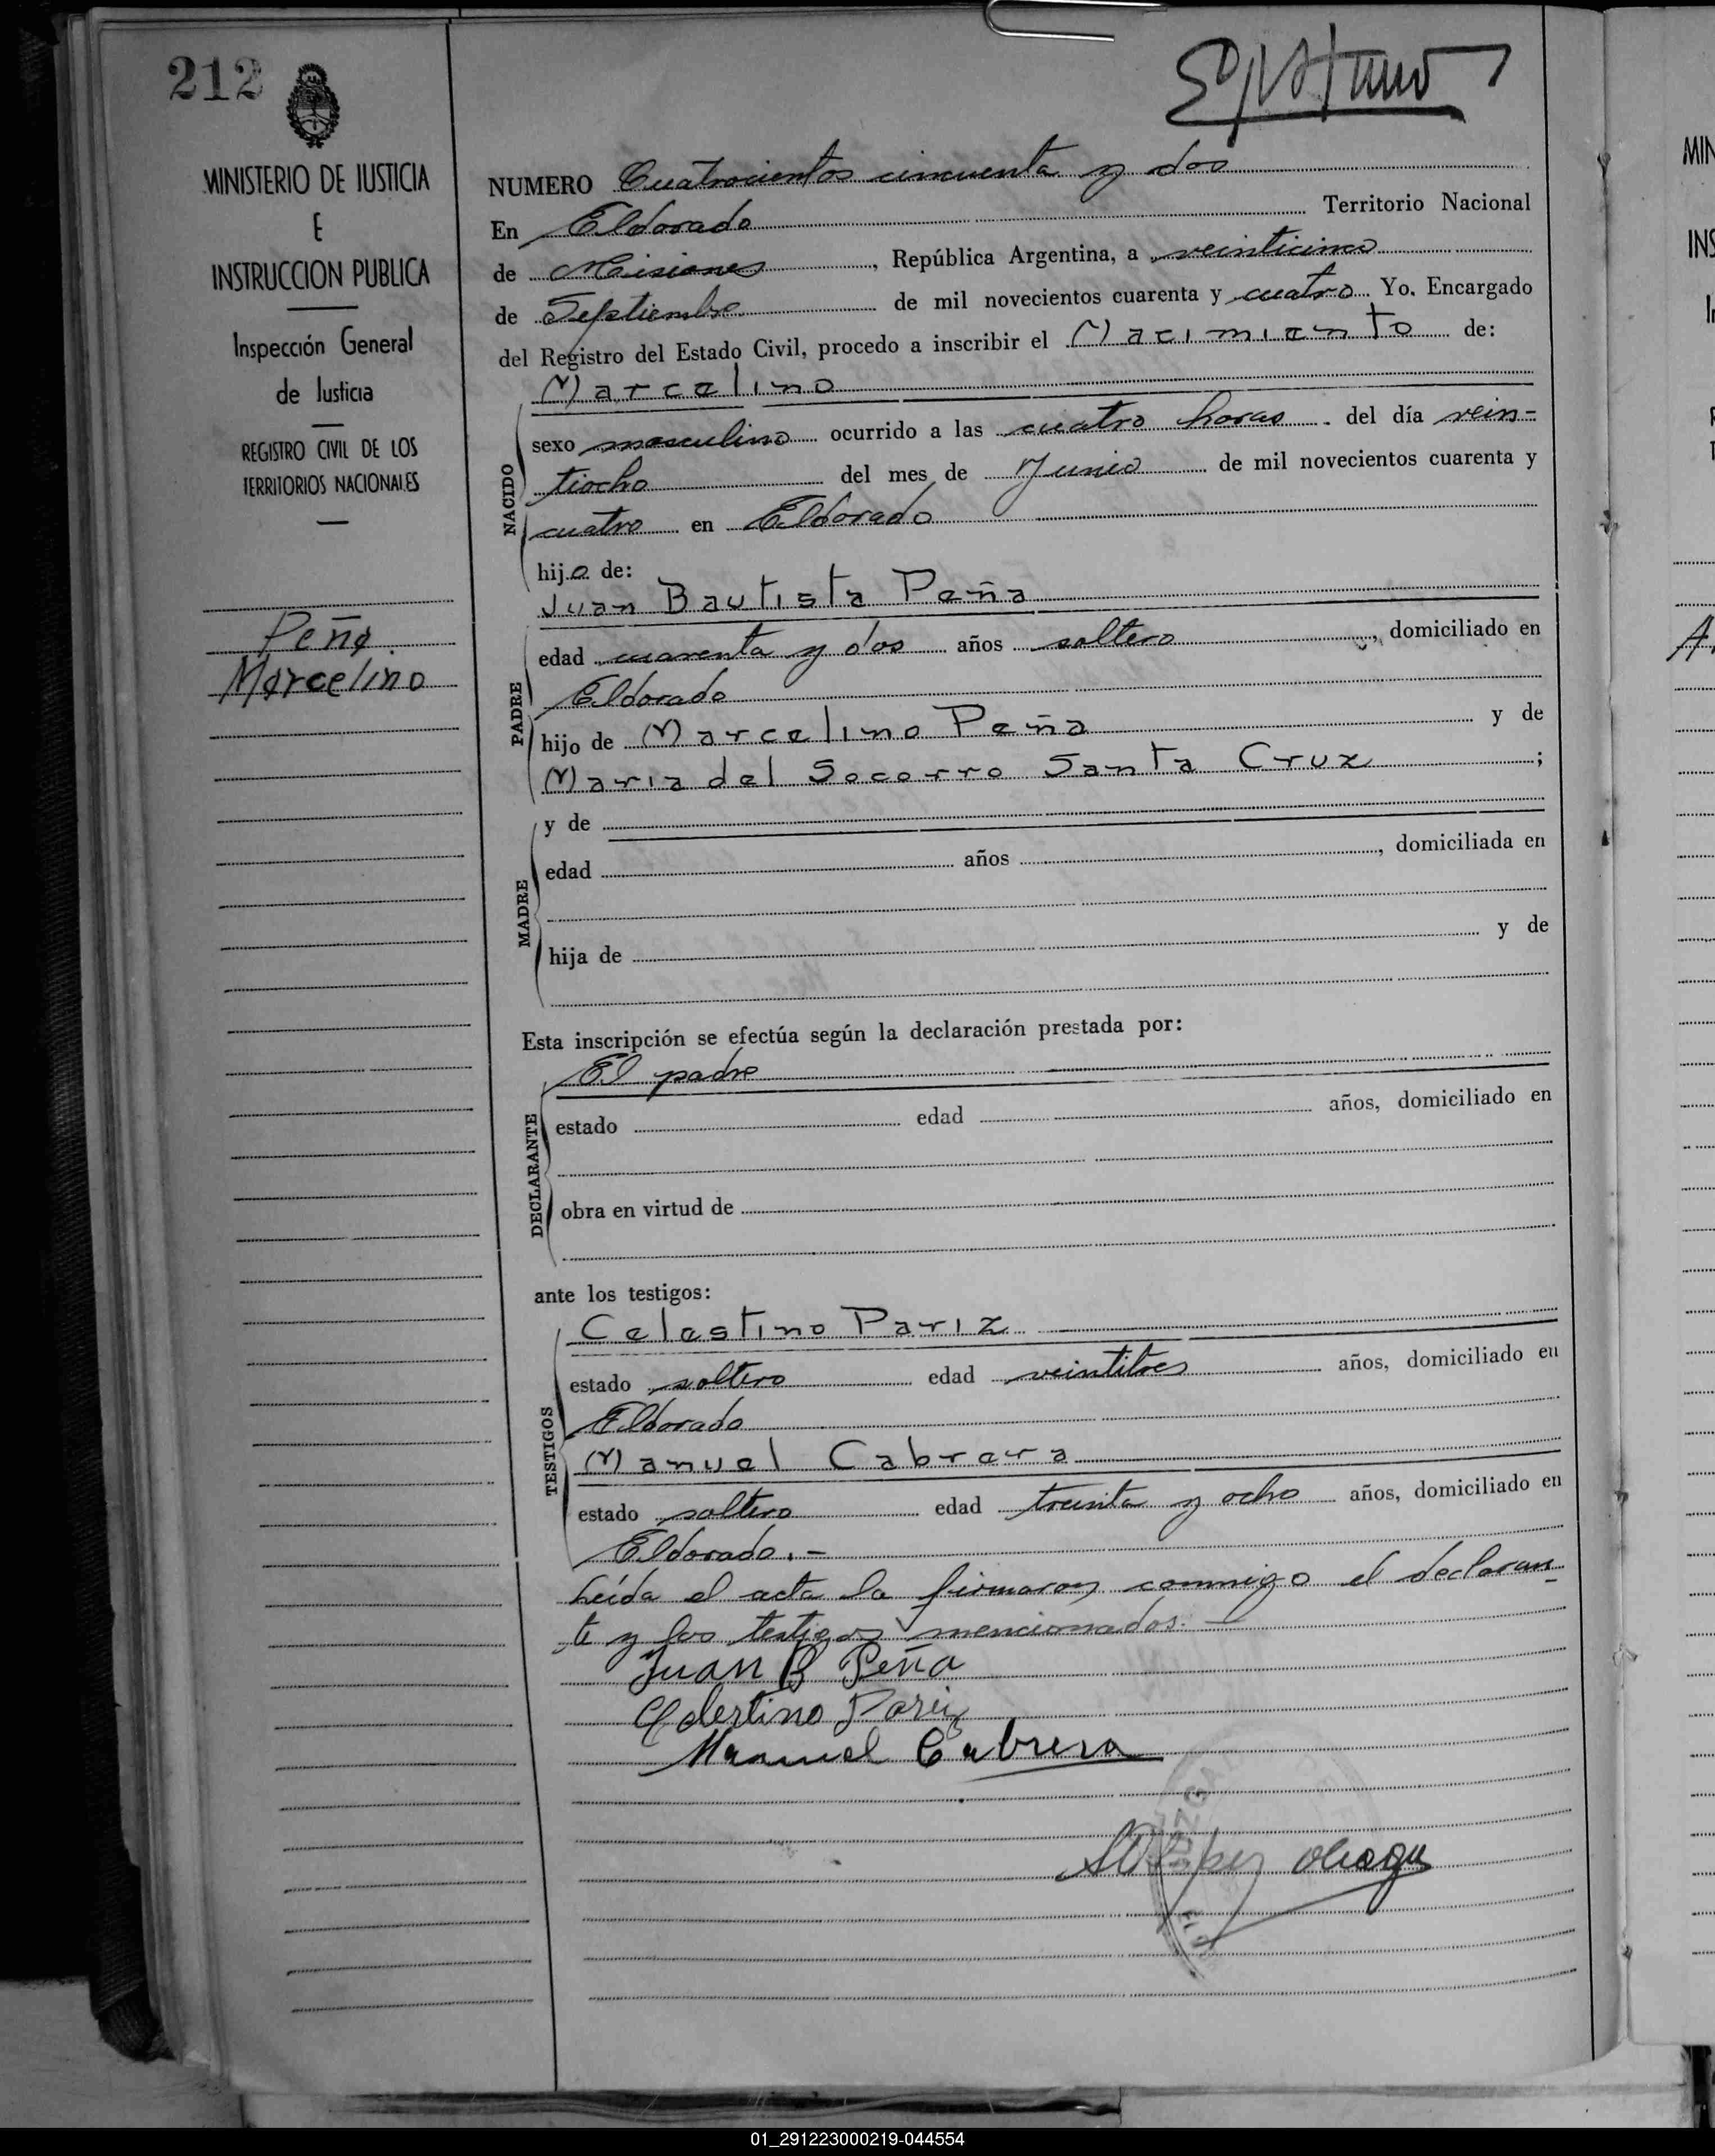 212
MINISTERIO DE JUSTICIA
E
INSTRUCCION PUBLICA
Inspección General
de Justicia
REGISTRO CIVIL DE LOS
TERRITORIOS NACIONALES
Peña
Marcelino
NUMERO Cuatrocientos cincuenta y dos
En Eldorado Territorio Nacional
de Misiones, República Argentina, a veinticinco
de Septiembre de mil novecientos cuarenta y cuatro Yo. Encargado
del Registro del Estado Civil, procedo a inscribir el Nacimiento de:
Marcelino
NACIDO
sexo masculino ocurrido a las cuatro horas del día vein=
tiocho del mes de Junio de mil novecientos cuarenta y
cuatro en Eldorado
hijo de:
Juan Bautista Peña
PADRE
edad cuarenta y dos años soltero, domiciliado en
Eldorado
hijo de Marcelino Peña y de
Maria del Socorro Santa Cruz;
y de
MADRE
edad años, domiciliada en
hija de y de
Esta inscripción se efectúa según la declaración prestada por:
El padre
DECLARANTE
estado edad años, domiciliado en
obra en virtud de
ante los testigos:
Celestino Pariz
TESTIGOS
estado soltero edad veintitres años, domiciliado en
Eldorado
Manuel Cabrera
estado soltero edad treinta y ocho años, domiciliado en
Eldorado.-
Leída el acta la firmaron conmigo el declaran-
te y los testigos mencionados.-
Juan B Peña
Celestino Pariz
Manuel Cabrera
01_291223000219-044554